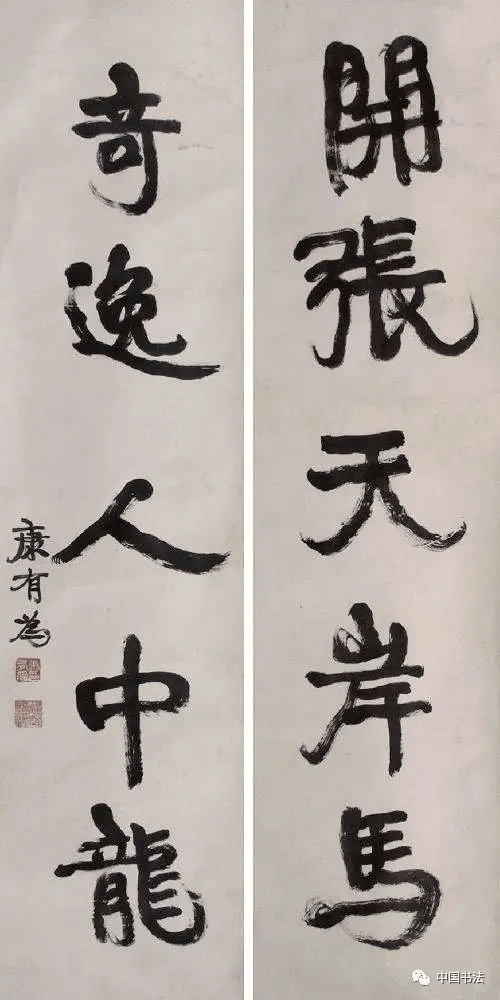 開張天岸馬
奇逸人中龍
康有為
中国书法